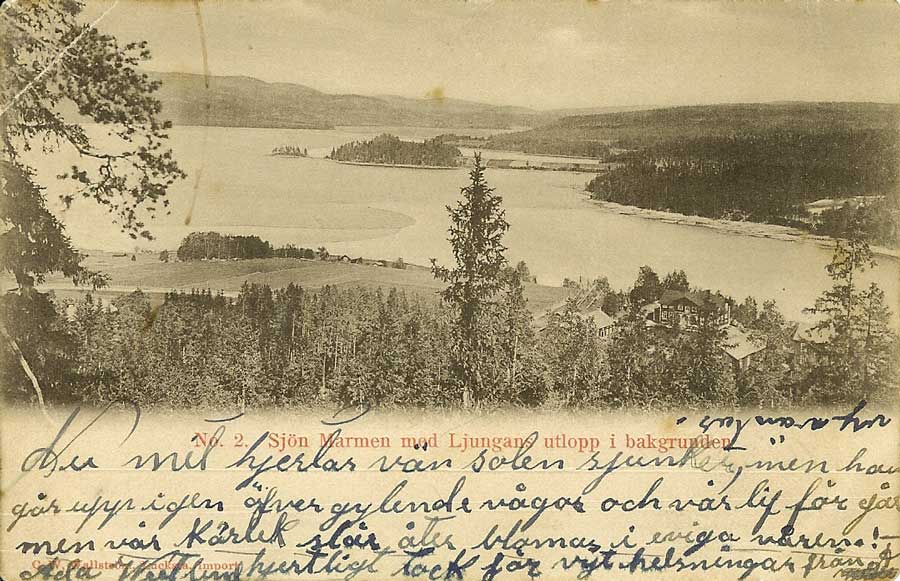 No. 2. Sjön Marmen med Ljungans utlopp i bakgrunden.
Du mitt hjertas vän solen sjunker, men han
går upp igen öfver gylende vågor och vår lif för går
men vår Kärlek står åter blomar i eviga våren!
C. W. import
hjertligt tack för vyt helsningar från